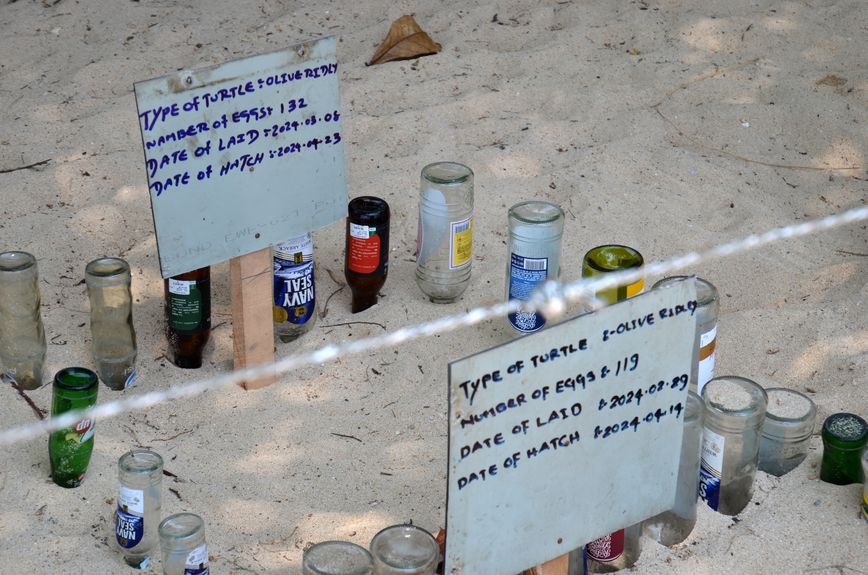 TYPE OF TURTLE :- OLIVE RIDLY
NAMBER OF EGGS :- 132
DATE OF LAID :- 2024.03.08
DATE OF HATCH :- 2024.04.23
NAVY
SEAL
UP
NAVY
SEAL
TYPE OF TURTLE :- OLIVE RIDLY
NUMBER OF EGGS :- 119
DATE OF LAID :- 2024.02.29
DATE OF HATCH :- 2024.04.14